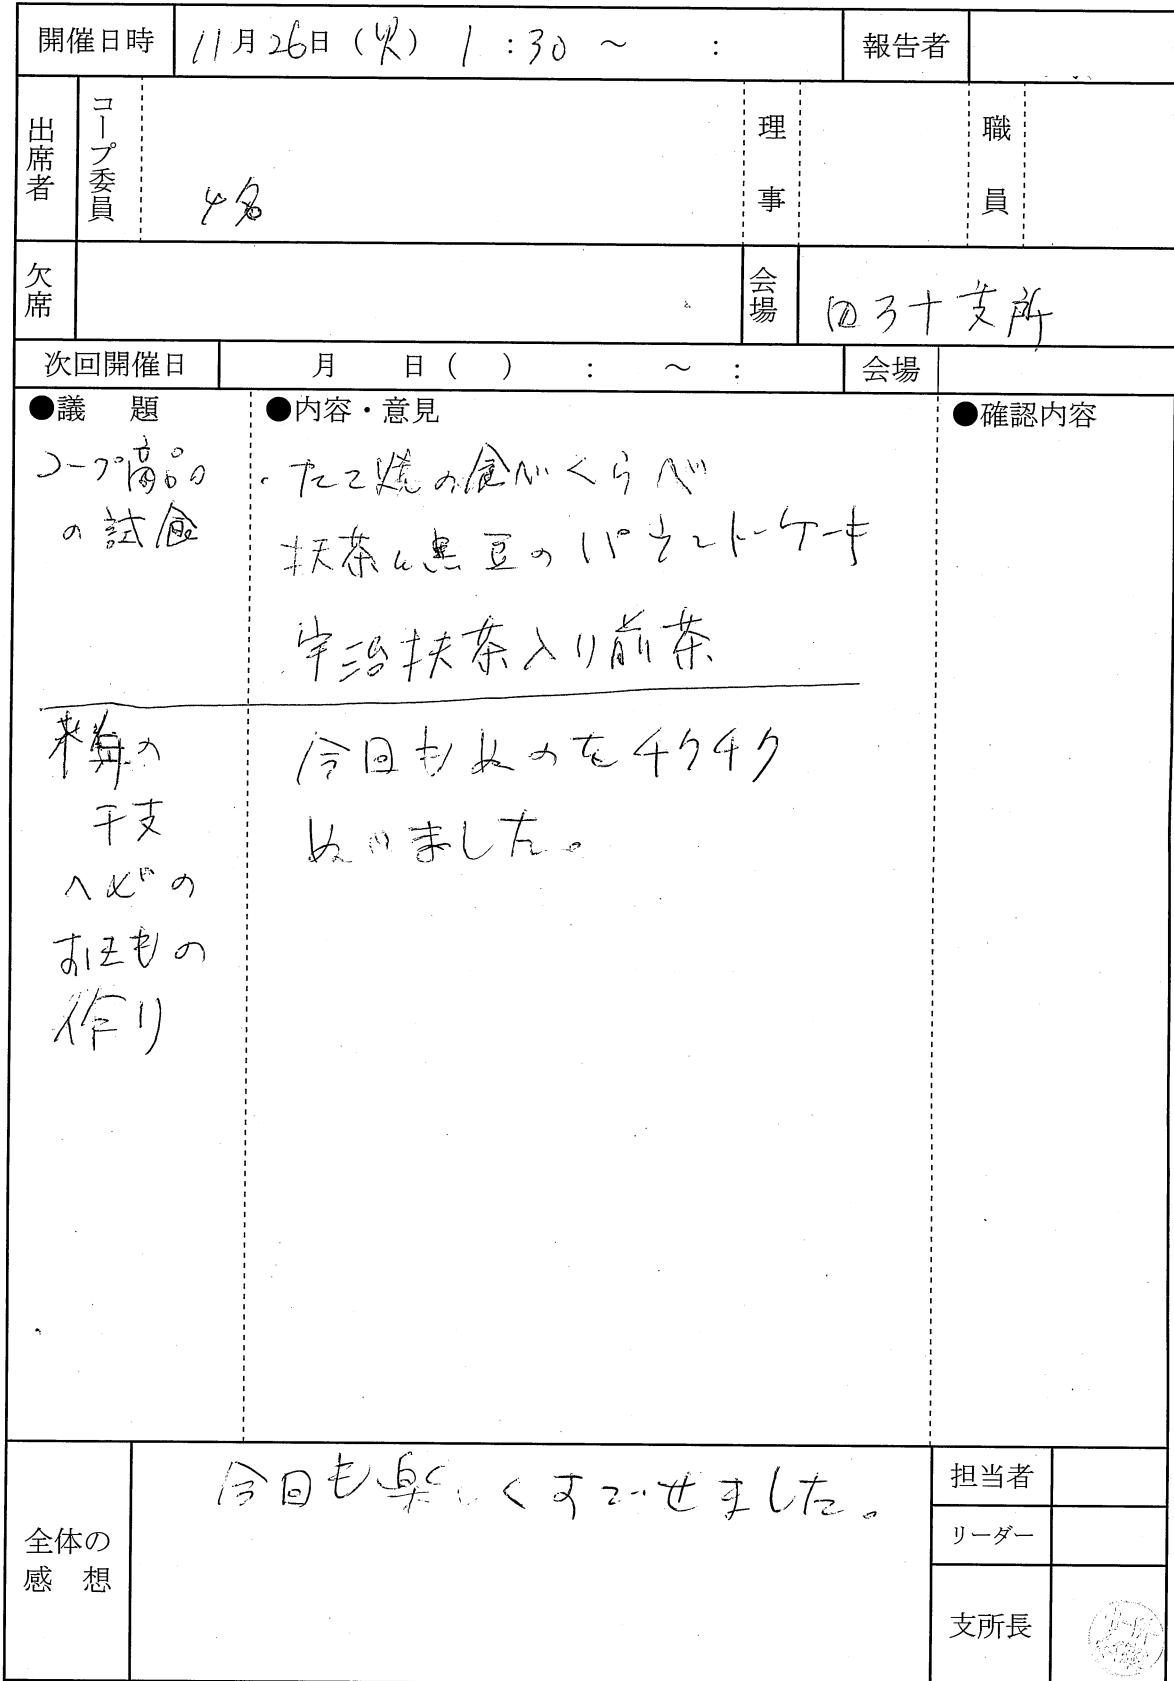 開催日時 11月26日(火) 1:30 ~ : 報告者
出席者 コープ委員 4名 理事 職員
欠席 会場 四万十支所
次回開催日 月 日( ) : ~ : 会場
●議 題 ●内容・意見 ●確認内容
コープ商品
の試食
・たて焼の食べくらべ
抹茶と黒豆のパウンドケーキ
宇治抹茶入り煎茶
来年の
干支
ヘビの
おきもの
作り
今回もぬのをチクチク
ぬいました。
全体の
感 想
今回も楽しくすごせました。
担当者
リーダー
支所長